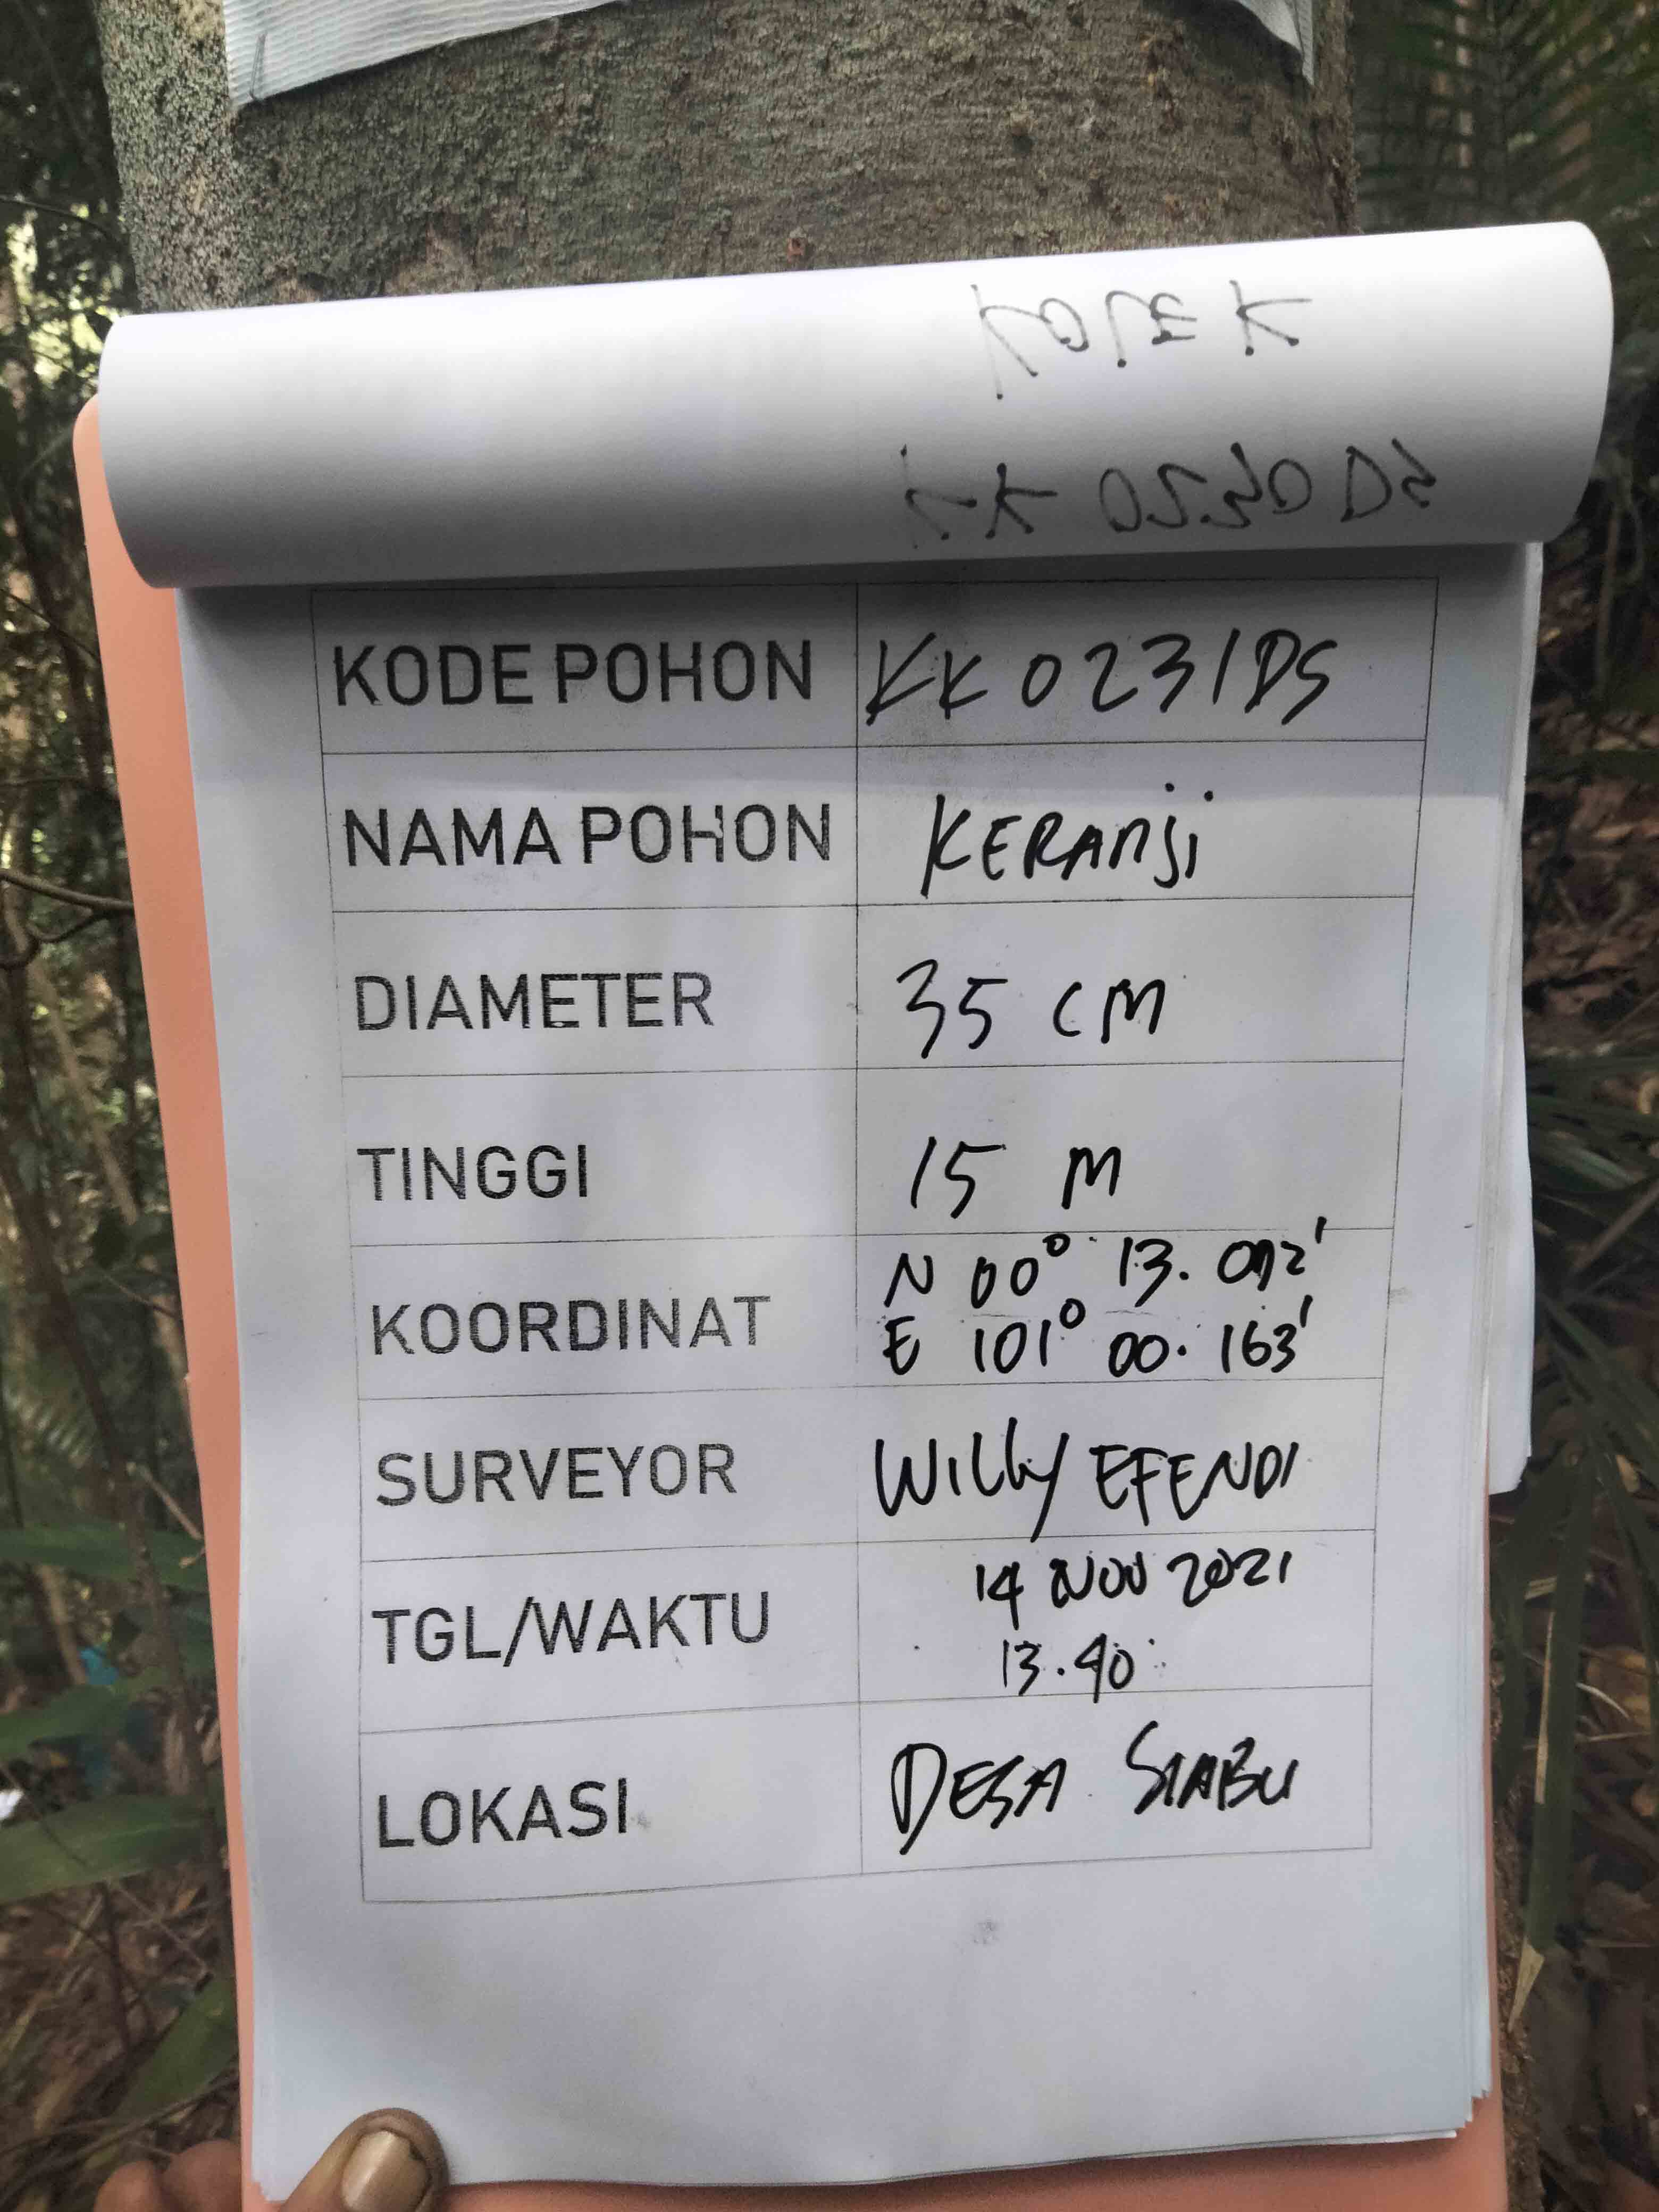 KODE POHON KK 0231DS
NAMA POHON KERANji
DIAMETER 35 CM
TINGGI 15 M
KOORDINAT N 00° 13.
E 101° 00. 163'
SURVEYOR WILLY EFENDI
TGL/WAKTU 14 NOV 2021
13.40
LOKASI DESA SIABU